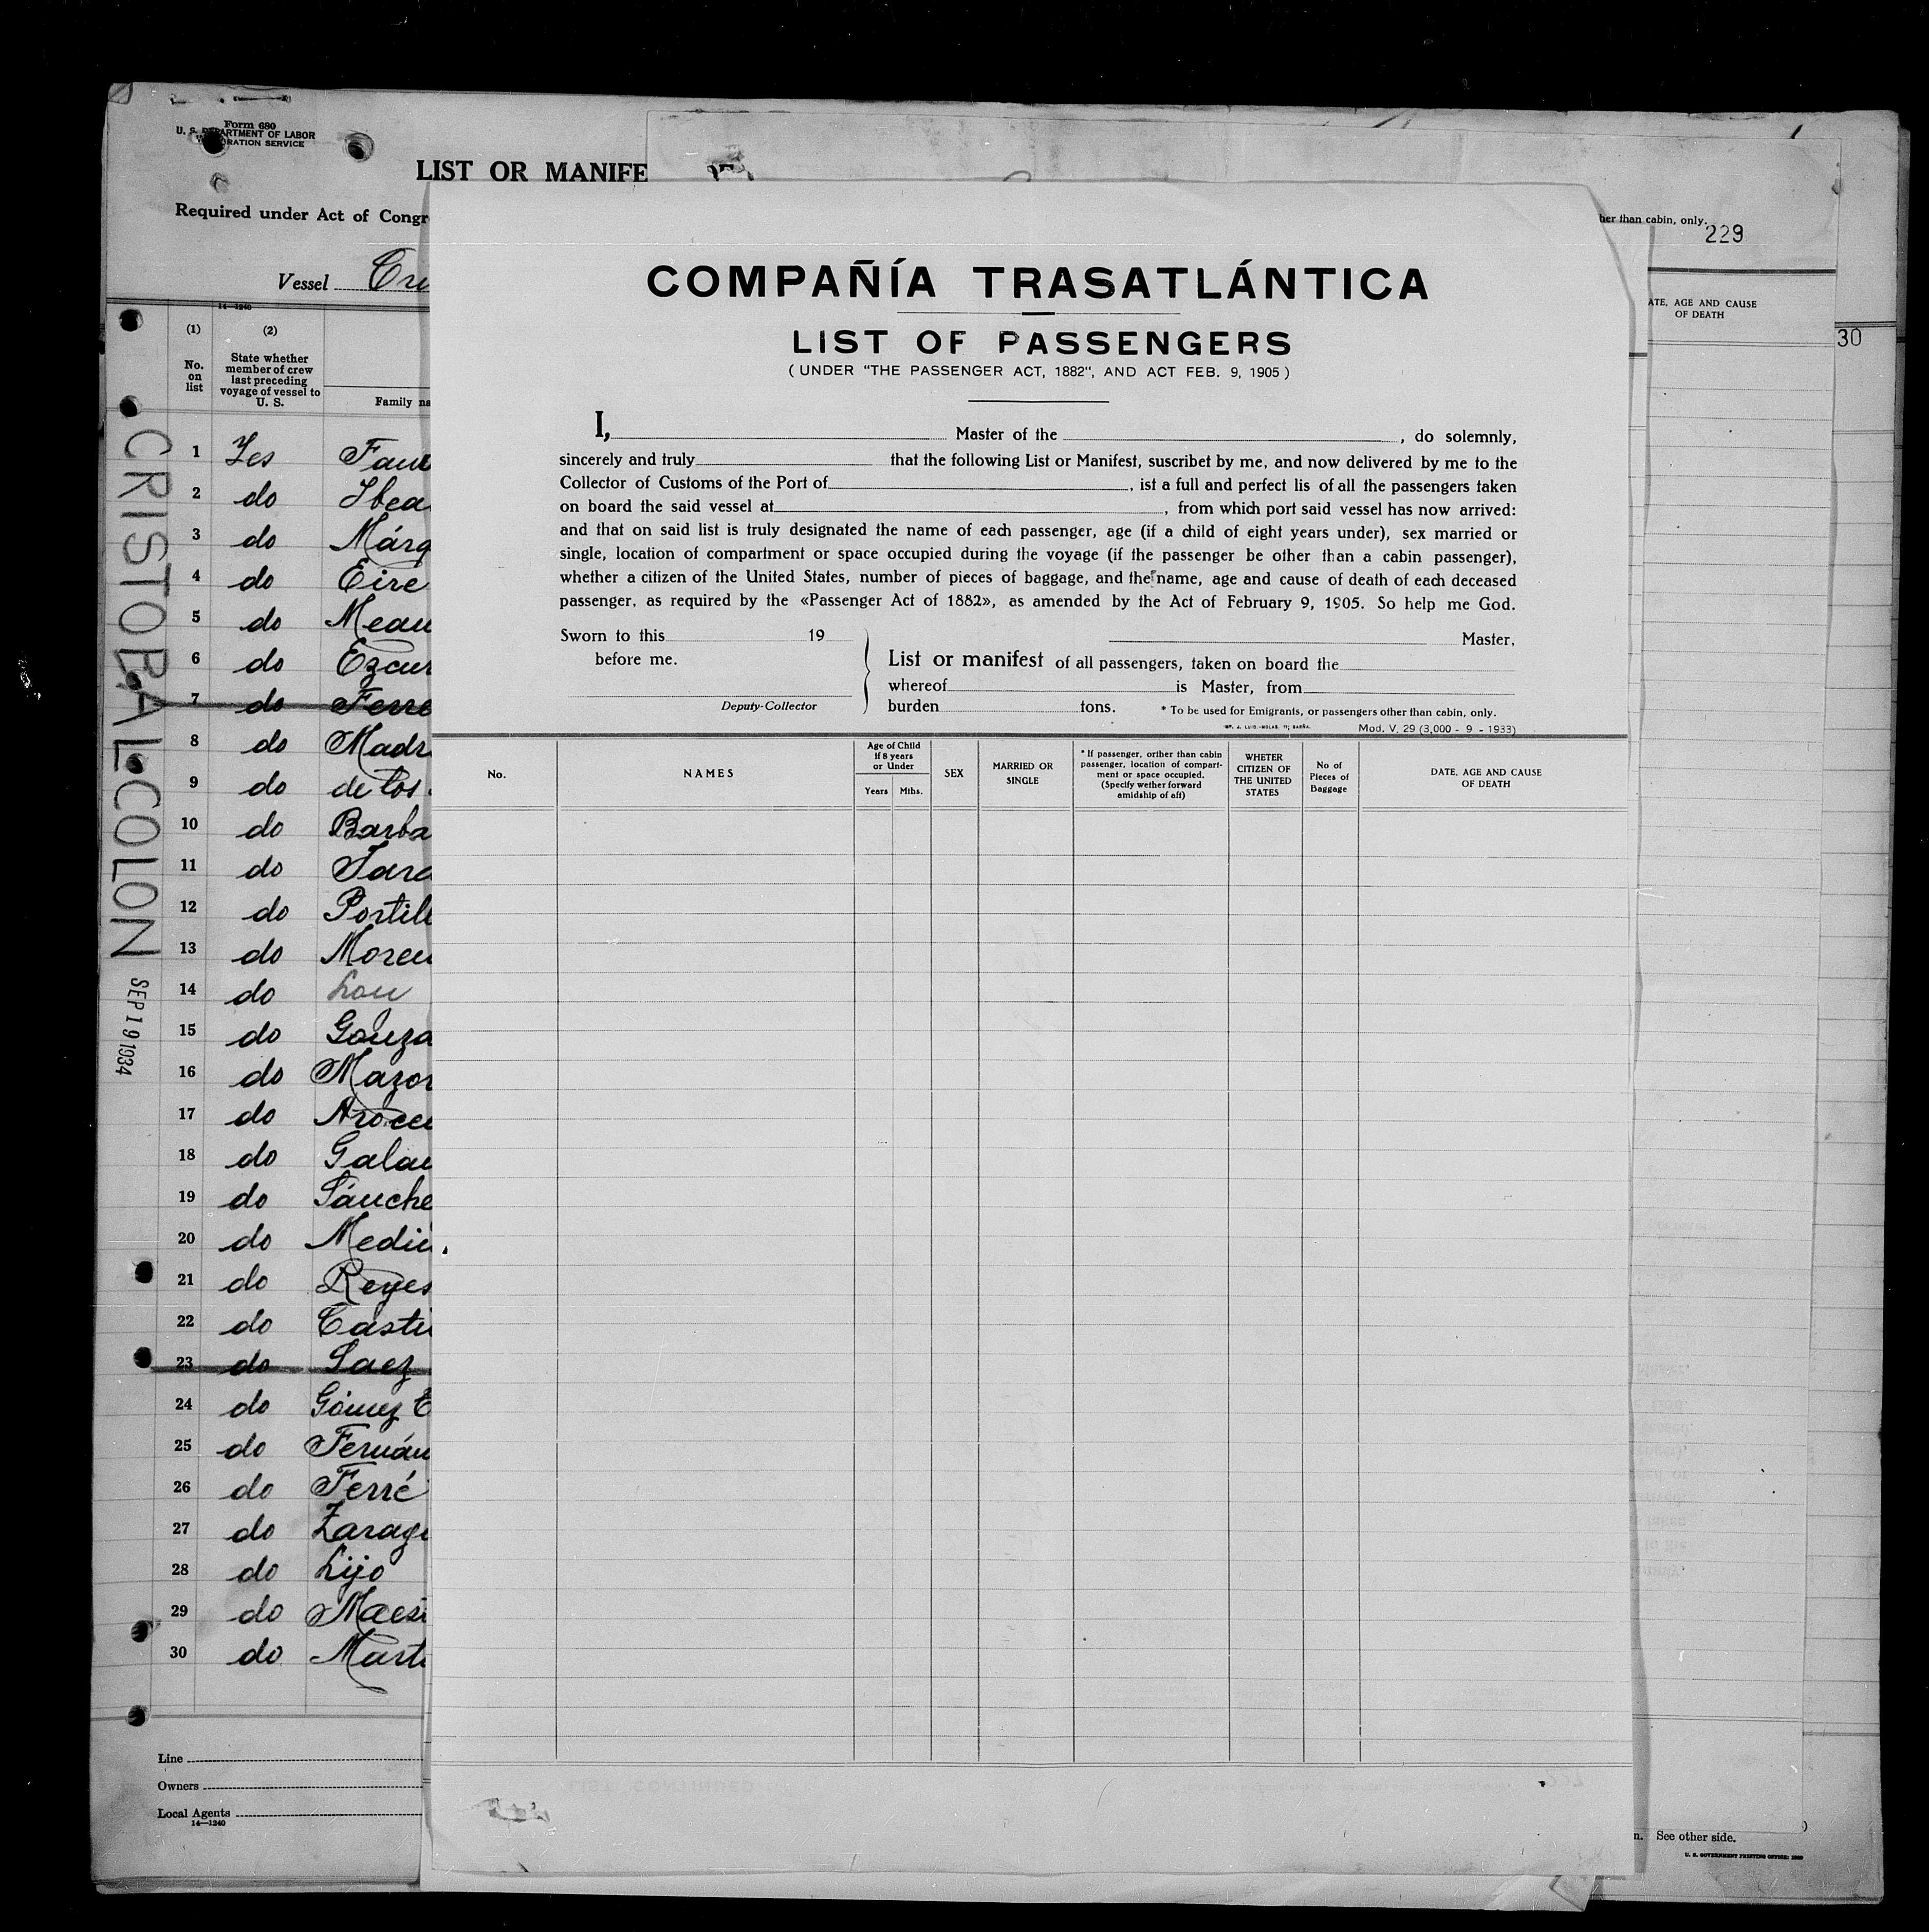 Form 680
U. S. DEPARTMENT OF LABOR
LIST OR MANIFE
Required under Act of Congr
Vessel
14—1240
(1) (2)
No. on list
State whether member of crew last preceding voyage of vessel to U. S.
Family na
1 Yes Fau
2 do Ibea
3 do Márq
4 do Eire
5 do Meau
6 do Ezcur
7 do Ferre
8 do Madr
9 do de los
10 do Barba
11 do
12 do Portill
13 do Moren
14 do Lou
15 do Gonza
16 do Mazor
17 do Arocen
18 do Galan
19 do Sánche
20 do Medin
21 do Reyes
22 do Casti
23 do Saez
24 do Gómez E
25 do Fernán
26 do Ferré
27 do Zarago
28 do Lijo
29 do Maes
30 do Marti
CRISTOBAL-COLON
SEP 19 1934
Line
Owners
Local Agents
14—1240
COMPAÑÍA TRASATLÁNTICA
LIST OF PASSENGERS
( UNDER "THE PASSENGER ACT, 1882", AND ACT FEB. 9, 1905 )
I, Master of the , do solemnly,
sincerely and truly that the following List or Manifest, suscribet by me, and now delivered by me to the
Collector of Customs of the Port of , ist a full and perfect lis of all the passengers taken
on board the said vessel at , from which port said vessel has now arrived:
and that on said list is truly designated the name of each passenger, age (if a child of eight years under), sex married or
single, location of compartment or space occupied during the voyage (if the passenger be other than a cabin passenger),
whether a citizen of the United States, number of pieces of baggage, and the name, age and cause of death of each deceased
passenger, as required by the «Passenger Act of 1882», as amended by the Act of February 9, 1905. So help me God.
Sworn to this 19
before me.
Deputy-Collector
Master,
List or manifest of all passengers, taken on board the
whereof is Master, from
burden tons. * To be used for Emigrants, or passengers other than cabin, only.
Mod. V. 29 (3,000 - 9 - 1933)
No.
NAMES
Age of Child if 8 years or Under
Years Mths.
SEX
MARRIED OR SINGLE
* If passenger, orther than cabin passenger, location of compartment or space occupied. (Specify wether forward amidship of aft)
WHETER CITIZEN OF THE UNITED STATES
No of Pieces of Baggage
DATE, AGE AND CAUSE OF DEATH
her than cabin, only.
229
ATE, AGE AND CAUSE
OF DEATH
30
n. See other side.
U. S. GOVERNMENT PRINTING OFFICE: